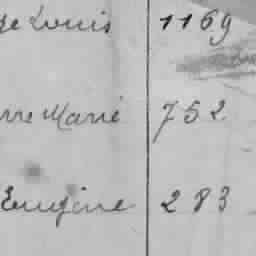 ge Louis 1169
rre Marie 752
Eugène 283